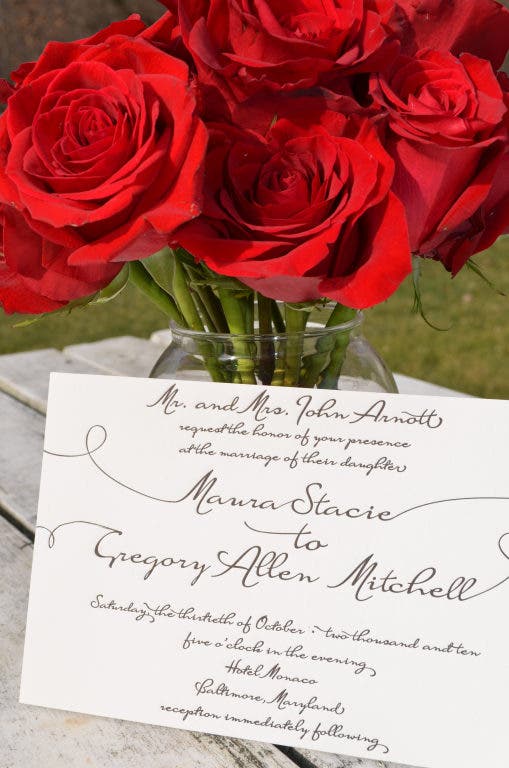 Mr. and Mrs. John Arnott
request the honor of your presence
at the marriage of their daughter
Maura Stacie
to
Gregory Allen Mitchell
Saturday, the thirtieth of October : two thousand and ten
five o'clock in the evening
Hotel Monaco
Baltimore, Maryland
reception immediately following